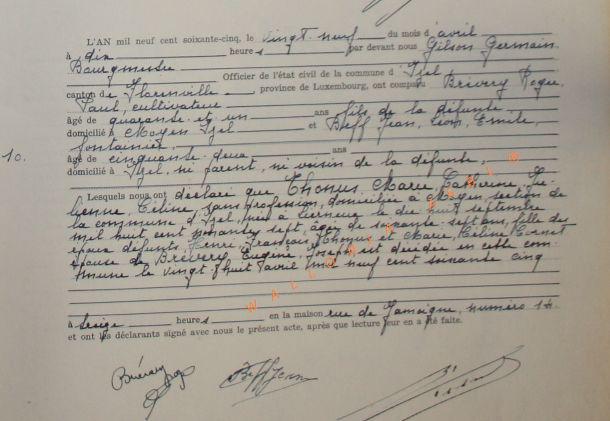 L'AN mil neuf cent soixante-cinq, le vingt-neuf du mois d'avril
à dix heures par devant nous Gilson Germain
Bourgmestre Officier de l'état civil de la commune d'Izel
canton de Florenville province de Luxembourg, ont comparu Brévery Roger,
Paul, cultivateur
âgé de quarante et un ans fils de la défunte
domicilié à Moyen Izel et Biff Jean, Léon, Emile,
fontainier,
10. âgé de cinquante-deux ans
domicilié à Izel, ni parent, ni voisin de la défunte,
Lesquels nous ont déclaré que Thonus, Marie, Catherine,
Céline, sans profession, domiciliée à Moyen, section de
la commune d'Izel, née à le dix huit septembre
mil huit cent nonante sept, âgée de soixante-sept ans, fille des
époux défunts Henri, François Thonus et Marie, Céline
épouse de Brévery, Eugène, Joseph est décédée en cette com
mune le vingt-huit avril mil neuf cent soixante cinq
WALLONIA
à seize heures en la maison rue de Jamoigne, numéro 14.
et ont les déclarants signé avec nous le présent acte, après que lecture leur en a été faite.
Biff Jean